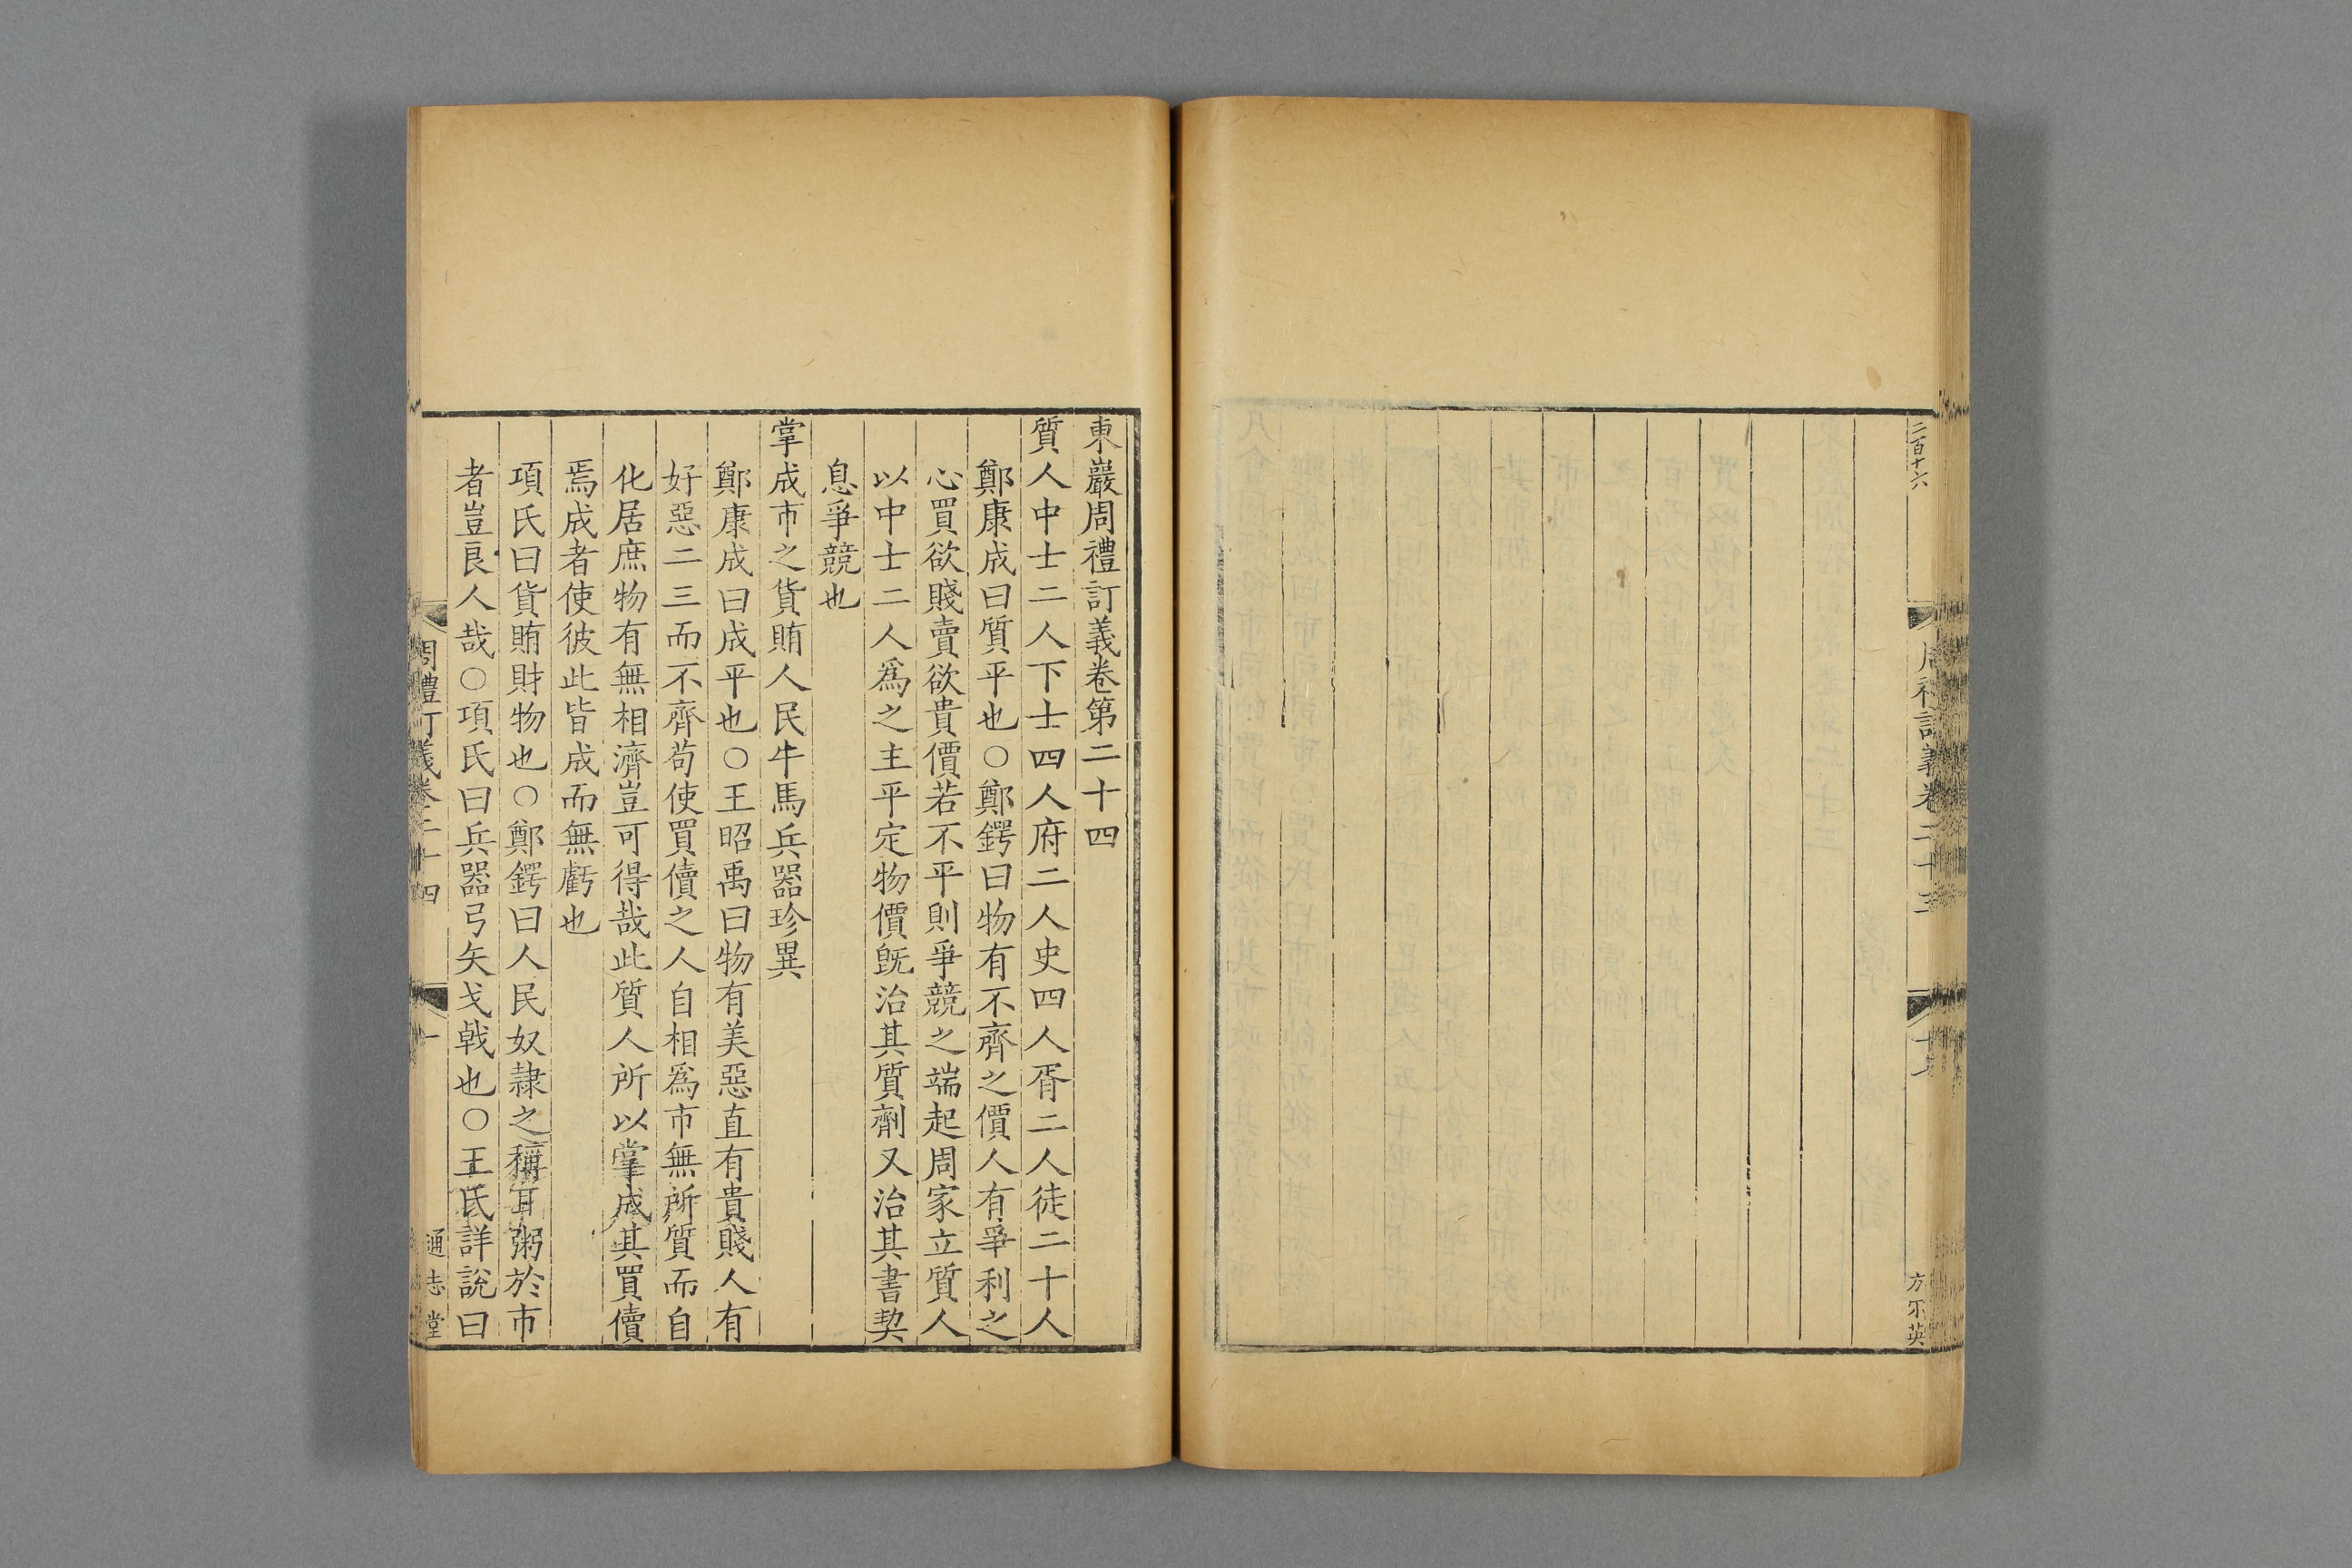 二百十六
周禮訂義卷二十三
方爾英
東巖周禮訂義卷第二十四
質人中士二人下士四人府二人史四人胥二人徒二十人
鄭康成曰質平也○鄭鍔曰物有不齊之價人有爭利之
心買欲賤賣欲貴價若不平則爭競之端起周家立質人
以中士二人爲之主平定物價旣治其質劑又治其書契
息爭競也
掌成市之貨賄人民牛馬兵器珍異
鄭康成曰成平也○王昭禹曰物有美惡直有貴賤人有
好惡二三而不齊苟使買儥之人自相爲市無所質而自
化居庶物有無相濟豈可得哉此質人所以掌成其買儥
焉成者使彼此皆成而無虧也
項氏曰貨賄財物也○鄭鍔曰人民奴隸之稱耳粥於市
者豈良人哉○項氏曰兵器弓矢戈戟也○王氏詳說曰
周禮訂義卷二十四
一
通志堂